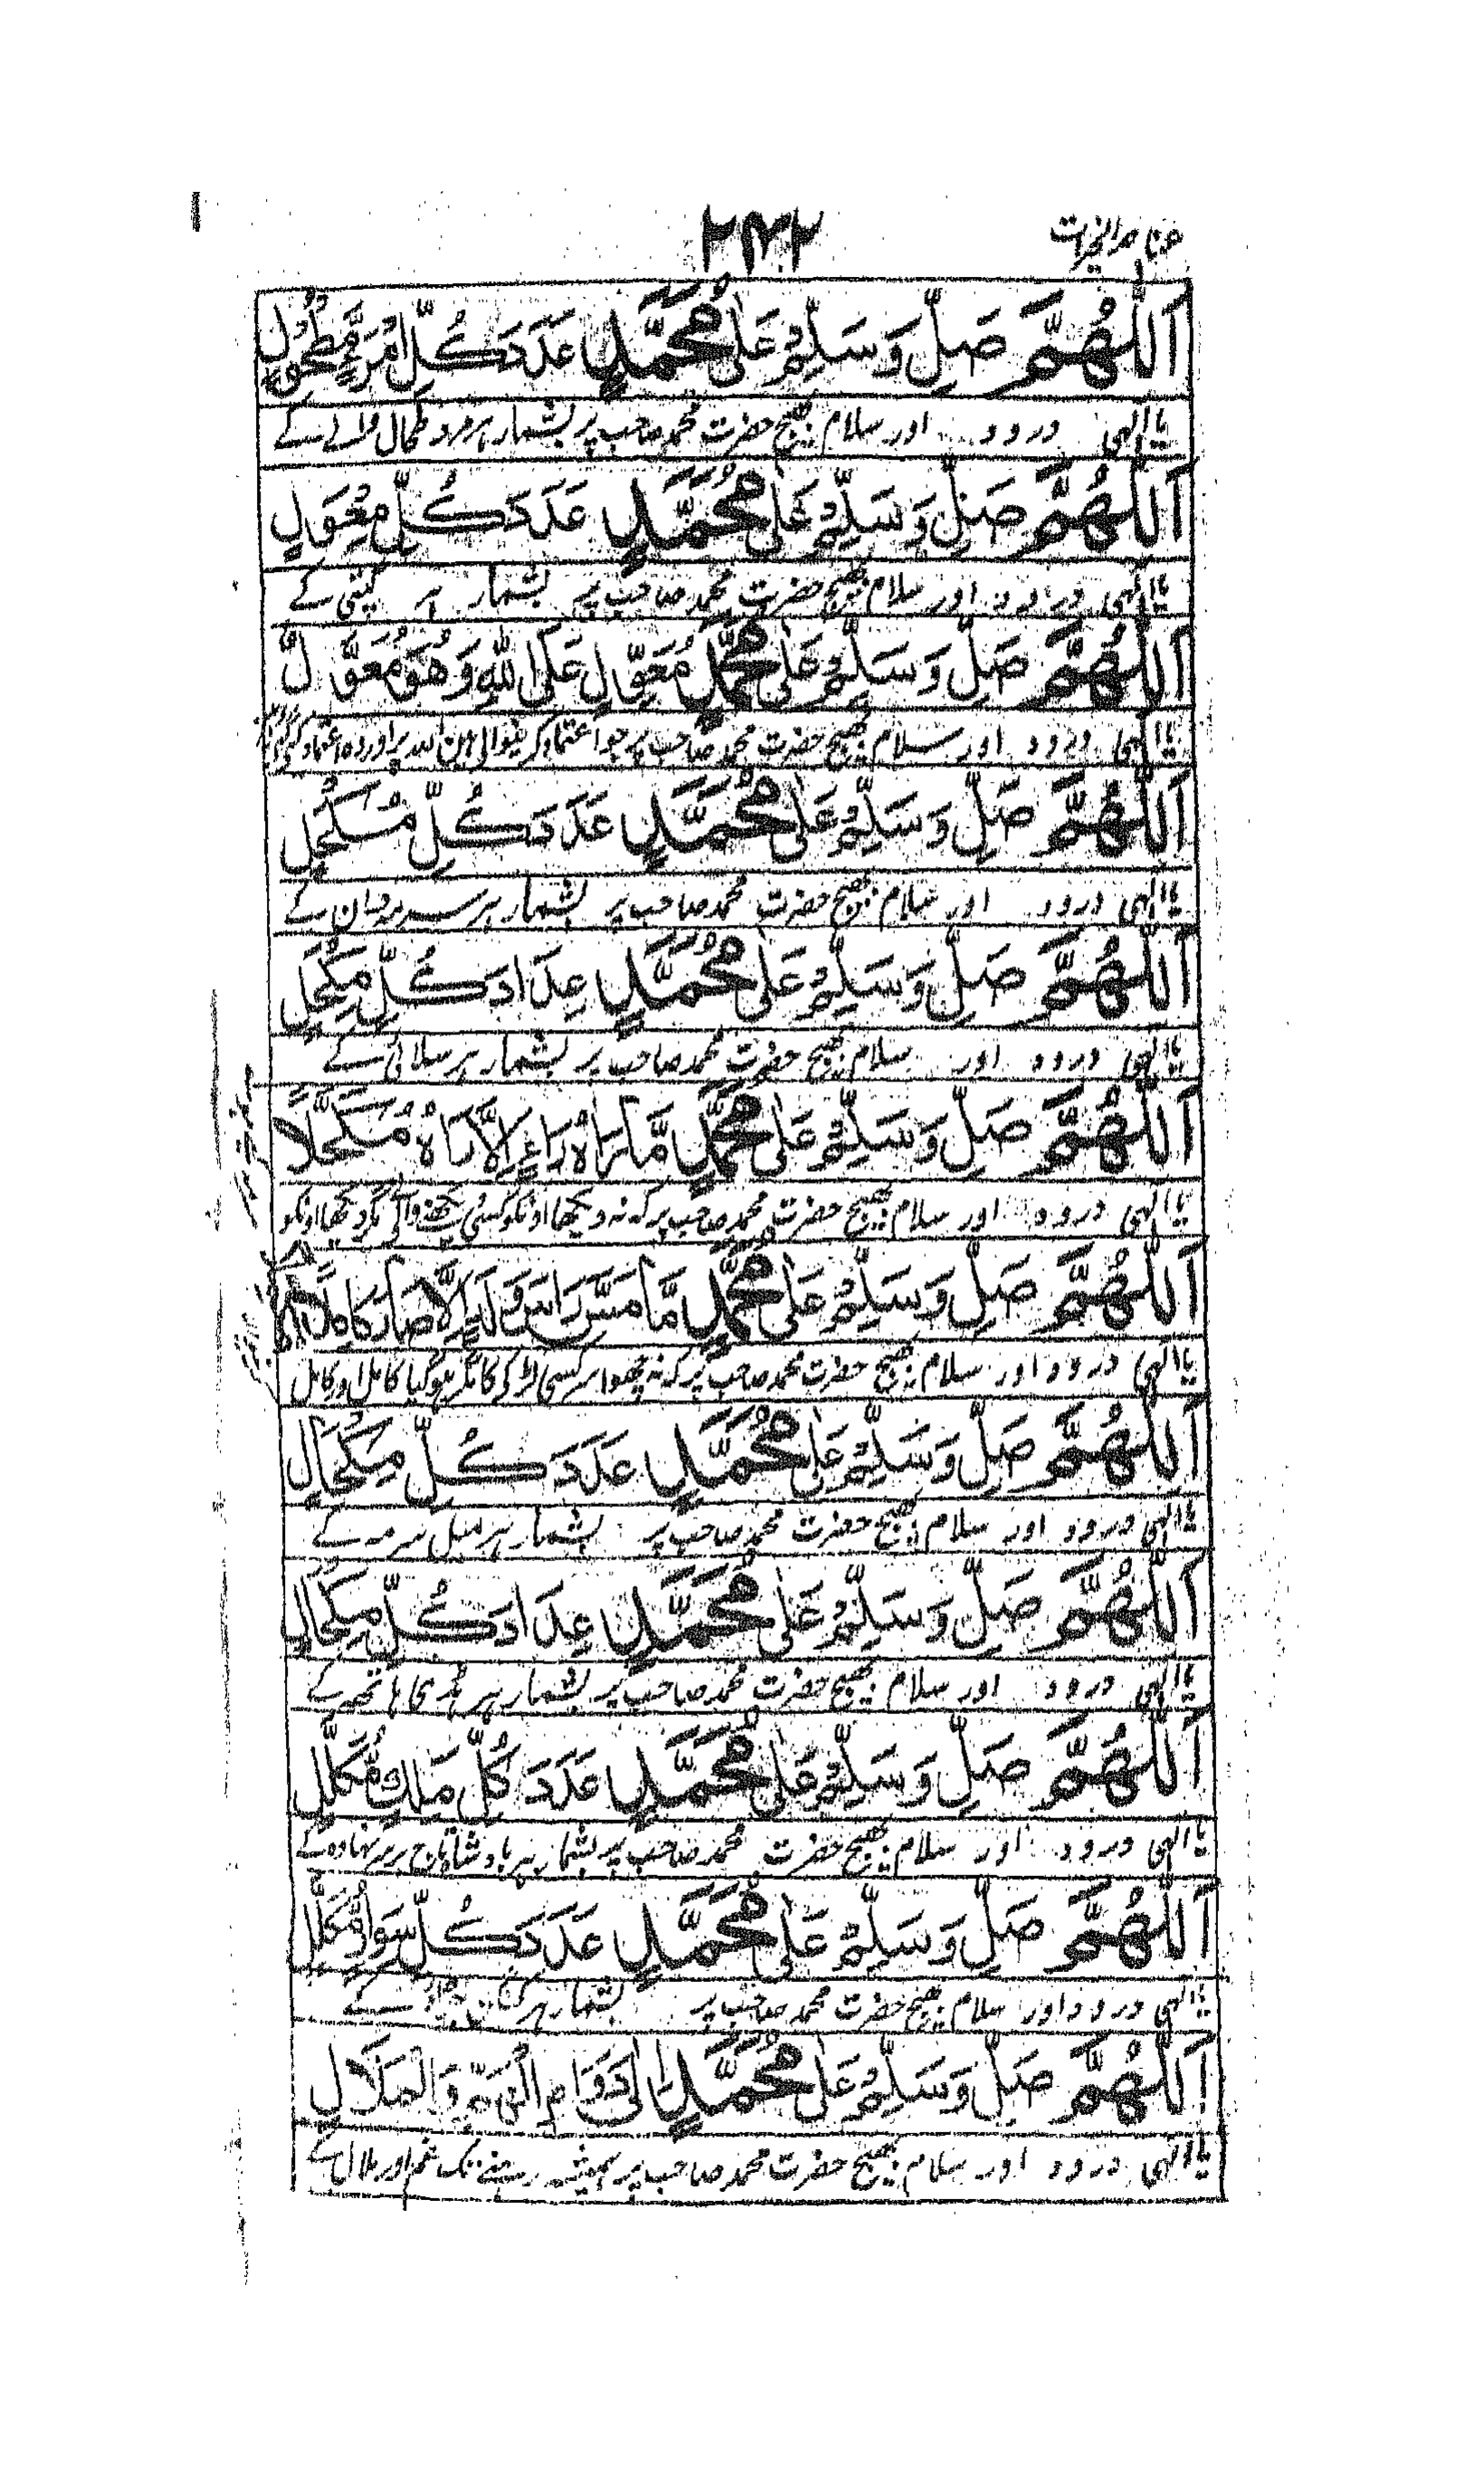 عناصر الخیرات
۲۴۲
اَللّٰهُمَّ صَلِّ وَسَلِّمْ عَلٰی مُحَمَّدٍ عَدَدَ كُلِّ امْرَءٍ مَّطْحُوْلٍ
یاالہی درود اور سلام بھیج حضرت محمد صاحب پر بشمار ہر مرد طحال والے کے
اَللّٰهُمَّ صَلِّ وَسَلِّمْ عَلٰی مُحَمَّدٍ عَدَدَ كُلِّ مِعْوَلٍ
یاالہی درود اور سلام بھیج حضرت محمد صاحب پر بشمار ہر کینتی کے
اَللّٰهُمَّ صَلِّ وَسَلِّمْ عَلٰی مُحَمَّدٍ مُعَوِّلٍ عَلَی اللّٰهِ وَهُوَ مُعَوَّلٌ
یاالہی درود اور سلام بھیج حضرت محمد صاحب پر جو اعتماد کرنیوالی ہین اللہ پر اور وہ اعتماد
اَللّٰهُمَّ صَلِّ وَسَلِّمْ عَلٰی مُحَمَّدٍ عَدَدَ كُلِّ مُسْكَحِلٍ
یاالہی درود اور سلام بھیج حضرت محمد صاحب پر بشمار ہر سرمہ دان کے
اَللّٰهُمَّ صَلِّ وَسَلِّمْ عَلٰی مُحَمَّدٍ عِدَادَ كُلِّ مِكْحَلٍ
یاالہی درود اور سلام بھیج حضرت محمد صاحب پر بشمار ہر سلائی کے
اَللّٰهُمَّ صَلِّ وَسَلِّمْ عَلٰی مُحَمَّدٍ مَّا رَاٰهُ رَاءٍ اِلَّا رَاٰهُ مُكَحَّلًا
یاالہی درود اور سلام بھیج حضرت محمد صاحب پر کہ نہ دیکھا اونکو کسی دیکھنے والے مگر دیکھا اونکو
اَللّٰهُمَّ صَلِّ وَسَلِّمْ عَلٰی مُحَمَّدٍ مَّا مَسَّ رَاْسَ وَلَدٍ اِلَّا صَارَ كَامِلًا
یاالہی درود اور سلام بھیج حضرت محمد صاحب پر کہ نہ چھوا سر کسی لڑکی کا مگر ہوگیا کامل اور کامل
اَللّٰهُمَّ صَلِّ وَسَلِّمْ عَلٰی مُحَمَّدٍ عَدَدَ كُلِّ مِكْحَالٍ
یاالہی درود اور سلام بھیج حضرت محمد صاحب پر بشمار ہر میل سرمہ کے
اَللّٰهُمَّ صَلِّ وَسَلِّمْ عَلٰی مُحَمَّدٍ عِدَادَ كُلِّ مِكْحَالٍ
یاالہی درود اور سلام بھیج حضرت محمد صاحب پر بشمار ہر ہڈی ہاتھ کے
اَللّٰهُمَّ صَلِّ وَسَلِّمْ عَلٰی مُحَمَّدٍ عَدَدَ كُلِّ مَلِكٍ مُّكَلَّلٍ
یاالہی درود اور سلام بھیج حضرت محمد صاحب پر بشمار ہر بادشاہ تاج بر سر نہادہ کے
اَللّٰهُمَّ صَلِّ وَسَلِّمْ عَلٰی مُحَمَّدٍ عَدَدَ كُلِّ سِوَارٍ مُّكَلَّلٍ
یاالہی درود اور سلام بھیج حضرت محمد صاحب پر بشمار ہر کنگن کے
اَللّٰهُمَّ صَلِّ وَسَلِّمْ عَلٰی مُحَمَّدٍ اِلٰی دَوَامِ الْهَمِّ وَالْمَلَالِ
یاالہی درود اور سلام بھیج حضرت محمد صاحب پر ہمیشہ رہنے تک غم اور ملال کے